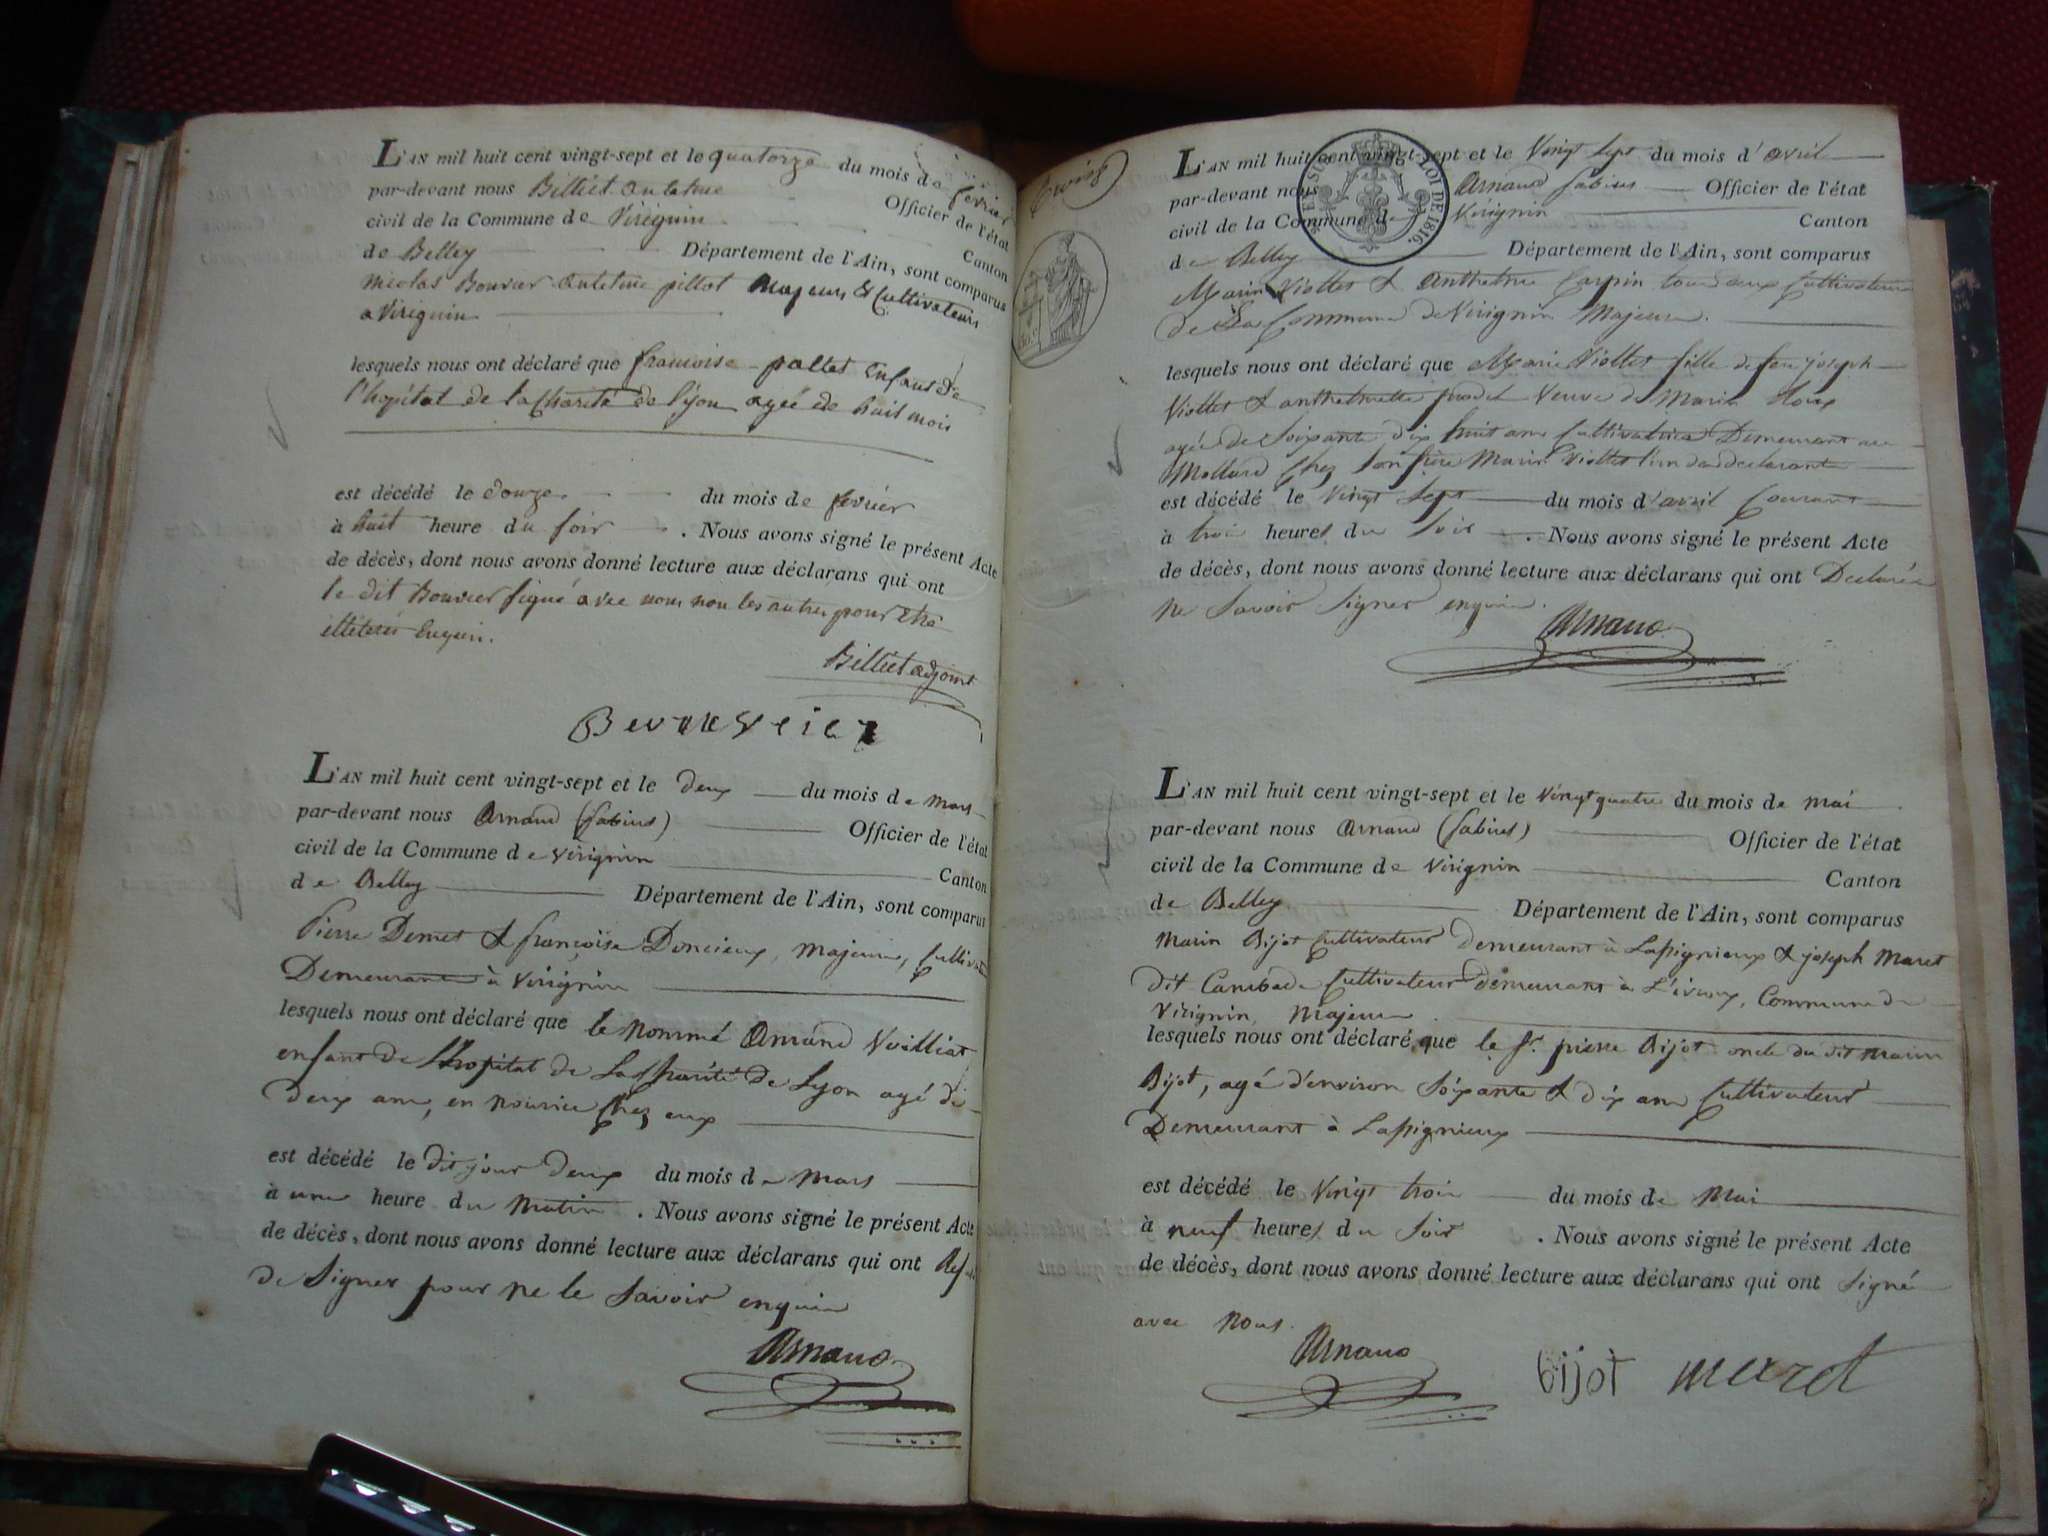 L'AN mil huit cent vingt-sept et le quatorze du mois de fevrier
par-devant nous Billiet antelme Officier de l'état
civil de la Commune de Virignin Canton
de Belley Département de l'Ain, sont comparus
nicolas Bouvier antelme pillot majeurs & Cultivateurs
a Virignin
lesquels nous ont déclaré que francoise pattet Enfant de
l'hopital de la Charité de lyon agée de huit mois
est décédé le douze du mois de fevrier
à huit heure du soir . Nous avons signé le présent Acte
de décès, dont nous avons donné lecture aux déclarans qui ont
le dit Bouvier signé avec nous non les autres pour etre
Enquis.
Billiet adjoint
L'AN mil huit cent vingt-sept et le deux du mois de mars
par-devant nous Arnaud (fabius) Officier de l'état
civil de la Commune de Virignin Canton
de Belley Département de l'Ain, sont comparus
Pierre Demet & françoise Doncieux, majeurs, Cultivat
Demeurant à Virignin
lesquels nous ont déclaré que le nommé Amand Vuilliat
enfant de L'hopital de La Charité de Lyon agé de
deux ans, en nourrice Chez eux
est décédé le dit jour deux du mois de mars
à une heure du matin . Nous avons signé le présent Acte
de décès, dont nous avons donné lecture aux déclarans qui ont
de Signer pour ne le Savoir enquis
Arnaud
L'AN mil huit cent vingt-sept et le Vingt Sept du mois d'avril
par-devant nous Arnaud fabius Officier de l'état
civil de la Commune de Virignin Canton
de Belley Département de l'Ain, sont comparus
Marin Viollet & anthelme Carpin tous deux Cultivateurs
de La Commune de Virignin Majeurs.
lesquels nous ont déclaré que Marie Viollet fille de feu joseph
Viollet & anthelmette Veuve de Marin
agée de Soixante dix huit ans Cultivatrice Demeurant au
Mollard Chez Son frère Marin Viollet l'un des declarants
est décédé le Vingt Sept du mois d'avril Courant
à trois heures du Soir . Nous avons signé le présent Acte
de décès, dont nous avons donné lecture aux déclarans qui ont Declaré
ne Savoir Signer enquis.
Arnaud
L'AN mil huit cent vingt-sept et le Vingt quatre du mois de mai
par-devant nous Arnaud (fabius) Officier de l'état
civil de la Commune de Virignin Canton
de Belley Département de l'Ain, sont comparus
Marin Bijot Cultivateur demeurant à Lassignieux & joseph Maret
dit Cultivateur demeurant à Commune de
Virignin, Majeurs
lesquels nous ont déclaré que le Sr. pierre Bijot oncle du dit marin
Bijot, agé d'environ Soixante & dix ans Cultivateur
Demeurant à Lassignieux
est décédé le Vingt trois du mois de Mai
à neuf heures du Soir . Nous avons signé le présent Acte
de décès, dont nous avons donné lecture aux déclarans qui ont Signé
avec nous.
Arnaud bijot maret